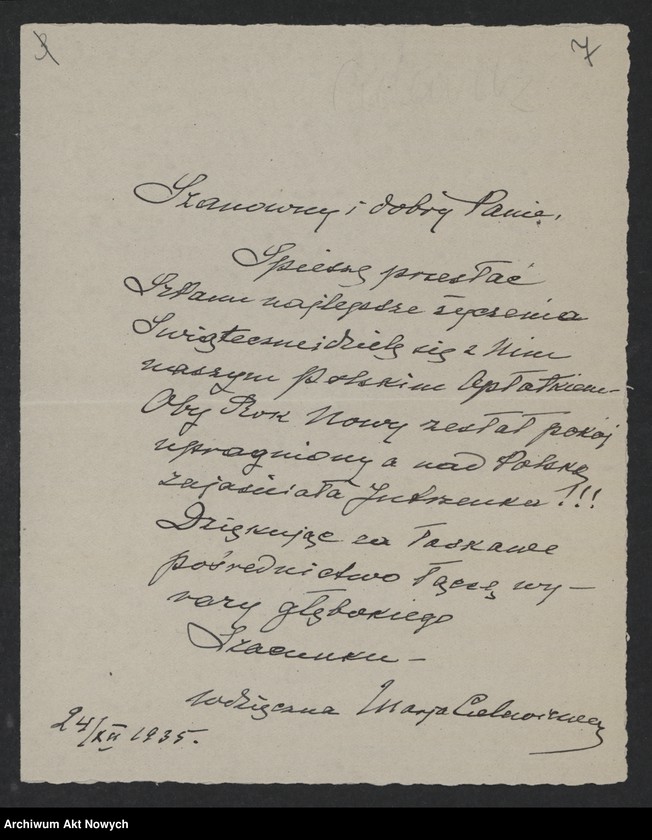 7
Szanowny i dobry Panie,
Spieszę przesłać
Sz Panu najlepsze życzenia
Świąteczne i dzielę się z Nim
naszym polskim Opłatkiem –
Oby Rok Nowy zesłał pokój
upragniony a nad Polską
zajaśniała Jutrzenka!!!
Dziękując za łaskawe
pośrednictwo łączę wy –
razy głębokiego
Szacunku –
wdzięczna Marja
24/XII 1935.
Archiwum Akt Nowych